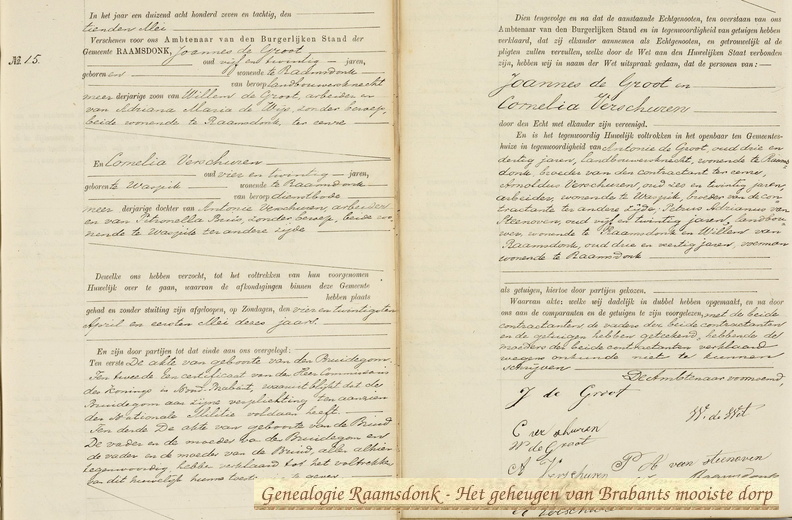 In het jaar een duizend acht honderd zeven en tachtig, den
tienden Mei
Verschenen voor ons Ambtenaar van den Burgerlijken Stand der
Gemeente RAAMSDONK, Joannes de Groot
Nº 15.
oud vijf en twintig jaren,
geboren en wonende te Raamsdonk
van beroep landbouwersknecht
meerderjarige zoon van Willem de Groot, arbeider en
van Adriana Maria de Wijs, zonder beroep,
beide wonende te Raamsdonk, ter eenre
En Cornelia Verschuren
oud vier en twintig jaren,
geboren te Waspik wonende te Raamsdonk
van beroep dienstbode
meerderjarige dochter van Antonie Verschuren, arbeider
en van Petronella Bruis, zonder beroep, beide wo-
nende te Waspik ter andere zijde
Dewelke ons hebben verzocht, tot het voltrekken van hun voorgenomen
Huwelijk over te gaan, waarvan de afkondigingen binnen deze Gemeente
hebben plaats
gehad en zonder stuiting zijn afgeloopen, op Zondagen, den vier en twintigsten
April en eersten Mei dezes jaars.
En zijn door partijen tot dat einde aan ons overgelegd:
Ten eerste De akte van geboorte van den Bruidegom.
Ten tweede Een certificaat van de Heer Commissaris
des Konings in Noord-Brabant, waaruit blijkt dat de
Bruidegom aan zijne verpligting ten aanzien
der Nationale Militie voldaan heeft
Ten derde De akte van geboorte van de Bruid
De vader en de moeder van de Bruidegom en
de vader en de moeder van de Bruid, allen alhier
tegenwoordig, hebben verklaard tot het voltrekken
van dit huwelijk hunne toestemming te geven
Dien tengevolge en na dat de aanstaande Echtgenooten, ten overstaan van ons
Ambtenaar van den Burgerlijken Stand en in tegenwoordigheid van getuigen hebben
verklaard, dat zij elkander aannemen als Echtgenooten, en getrouwelijk al de
pligten zullen vervullen, welke door de Wet aan den Huwelijken Staat verbonden
zijn, hebben wij in naam der Wet uitspraak gedaan, dat de personen van:
Joannes de Groot en
Cornelia Verschuren
door den Echt met elkander zijn vereenigd.
En is het tegenwoordig Huwelijk voltrokken in het openbaar ten Gemeente-
huize in tegenwoordigheid van Antonie de Groot, oud drie en
dertig jaren, landbouwersknecht, wonende te Raams-
donk, broeder van den contractant ter eenre,
Arnoldus Verschuren, oud zes en twintig jaren,
arbeider, wonende te Waspik, broeder van de con-
tractante ter andere zijde, Petrus Adrianus van
Steenoven, oud vijf en twintig jaren, landbou-
wer, wonende te Raamsdonk en Willem van
Raamsdonk, oud drie en veertig jaren, voerman
wonende te Raamsdonk
als getuigen, hiertoe door partijen gekozen.
Waarvan akte: welke wij dadelijk in dubbel hebben opgemaakt, en na door
ons aan de comparanten en de getuigen te zijn voorgelezen, met de beide
contractanten, de vaders der beide contractanten
en de getuigen hebben geteekend, hebbende de
moeders der beide contractanten verklaard
wegens onkunde niet te kunnen
schrijven
De Ambtenaar voornoemd,
J de Groot
W. de Wet
C verschuren
W de Groot
A Verschuren
P A van steenoven
Raamsdonk
A Verschuren
Genealogie Raamsdonk - Het geheugen van Brabants mooiste dorp